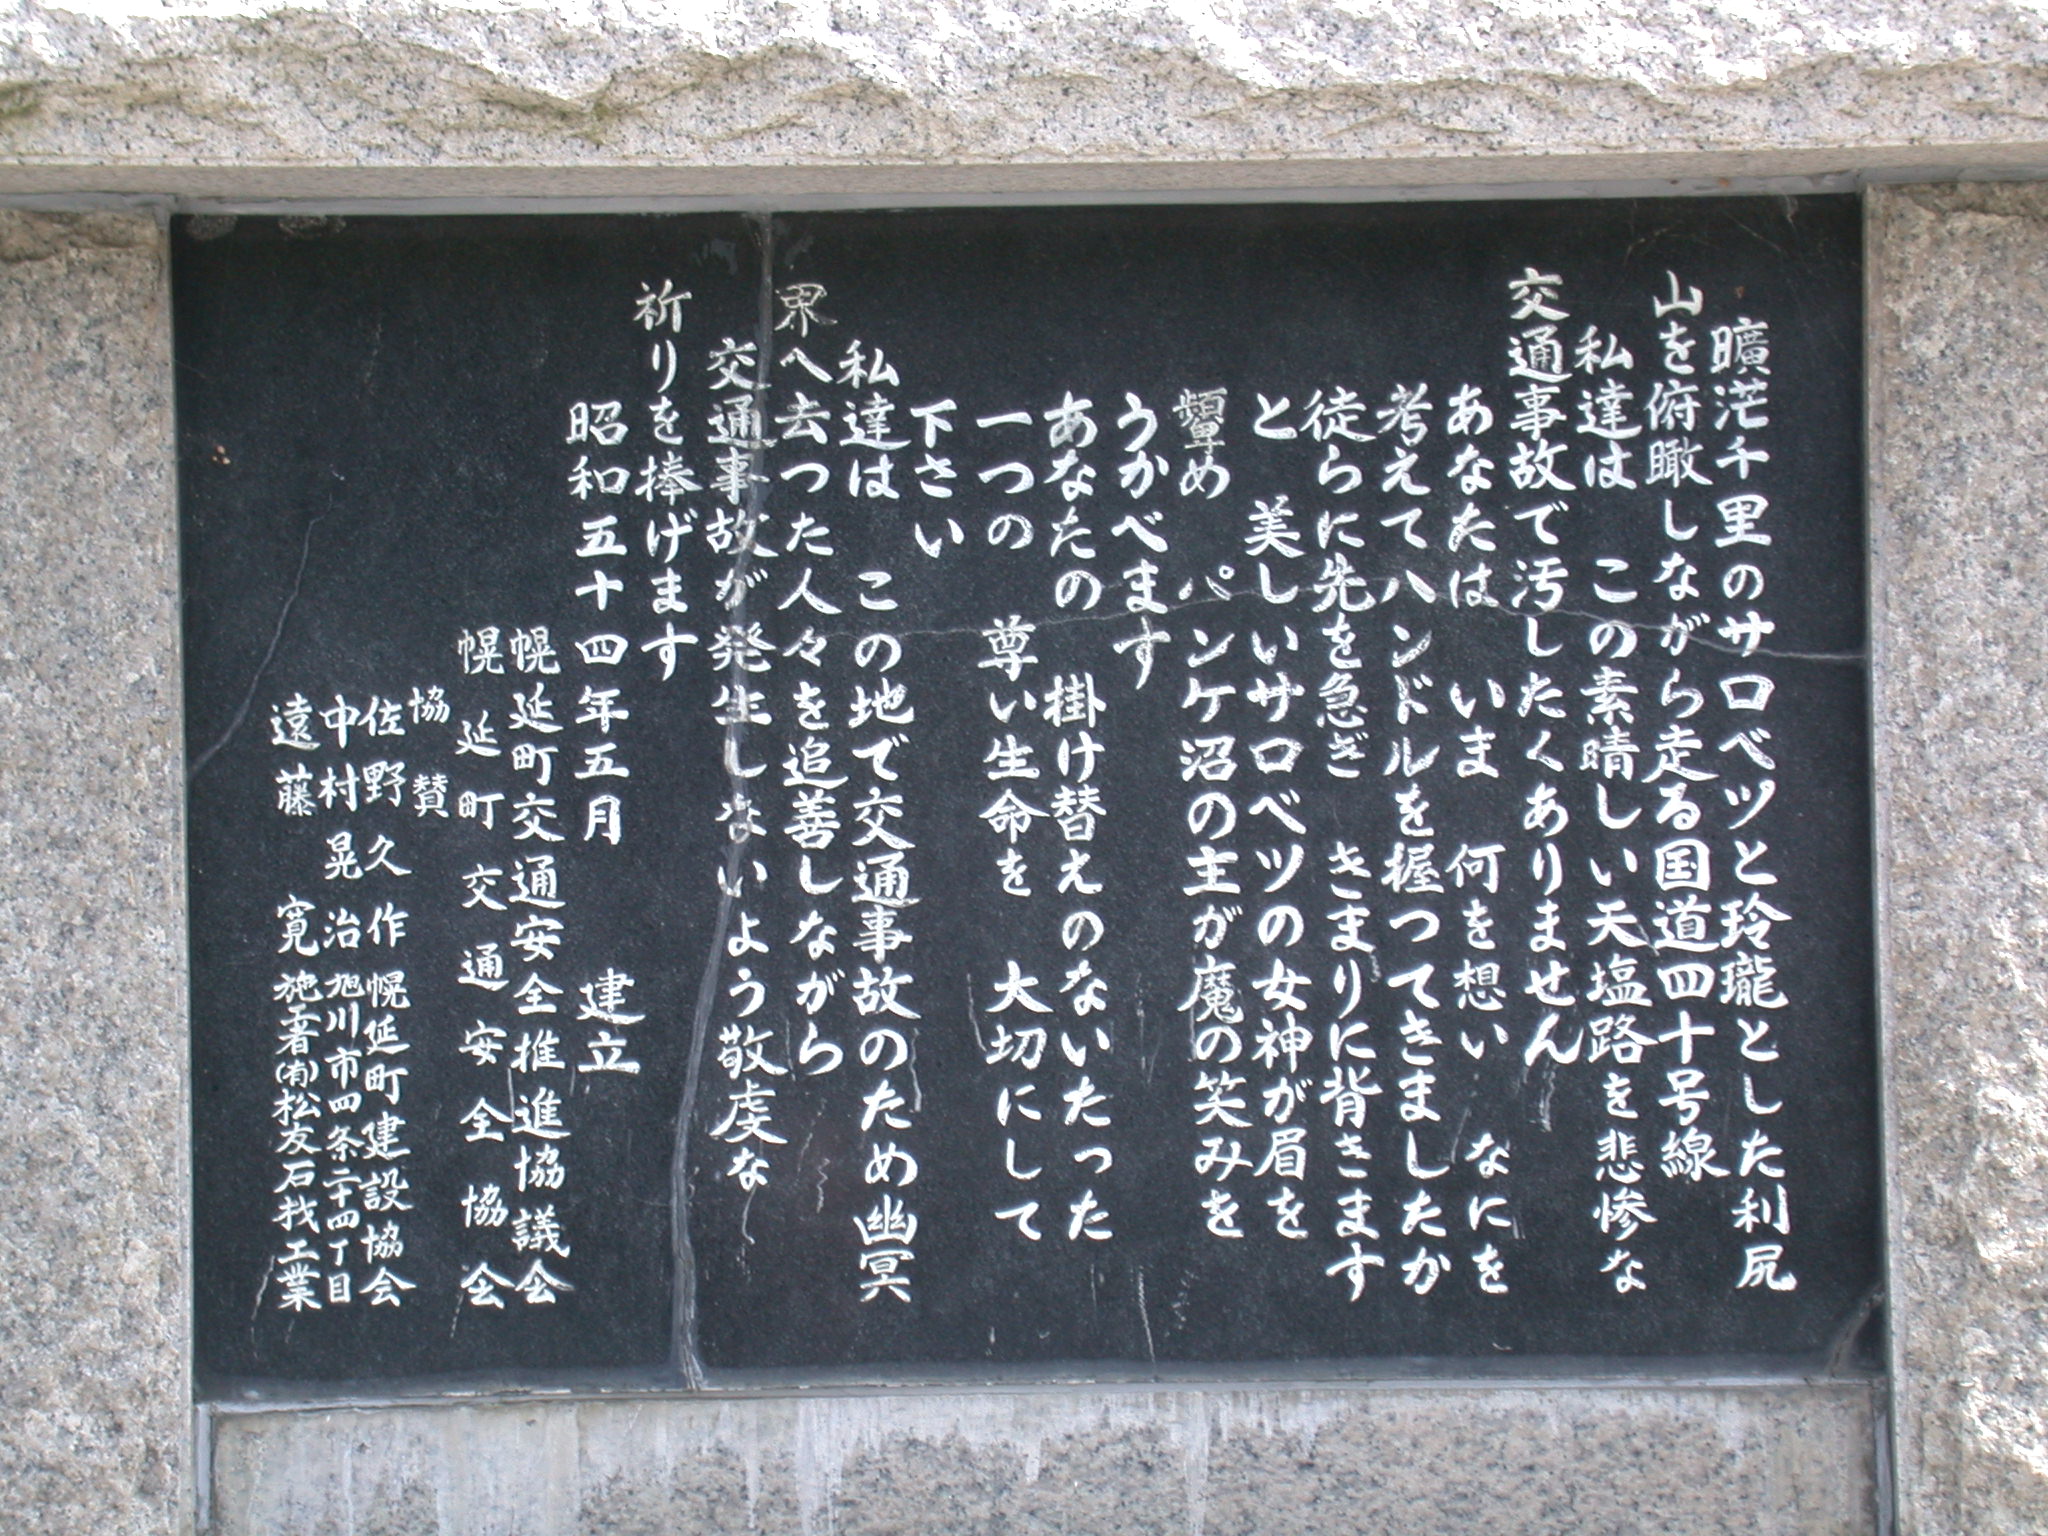 曠茫千里のサロベツと玲瓏とした利尻
山を俯瞰しながら走る国道四十号線
私達は　この素晴しい天塩路を悲惨な
交通事故で汚したくありません
あなたは　いま　何を想い　なにを
考えてハンドルを握つてきましたか
徒らに先を急ぎ　きまりに背きます
と　美しいサロベツの女神が眉を
顰め　パンケ沼の主が魔の笑みを
うかべます
あなたの　掛け替えのないたった
一つの　尊い生命を　大切にして
下さい
私達は　この地で交通事故のため幽冥
界へ去つた人々を追善しながら
交通事故が発生しないよう敬虔な
祈りを捧げます
昭和五十四年五月　建立
幌延町交通安全推進協議会
幌延町交通安全協会
協賛
佐野久作　幌延町建設協会
中村晃治　旭川市四条二十四丁目
遠藤　寛　施工者(有)松友石材工業